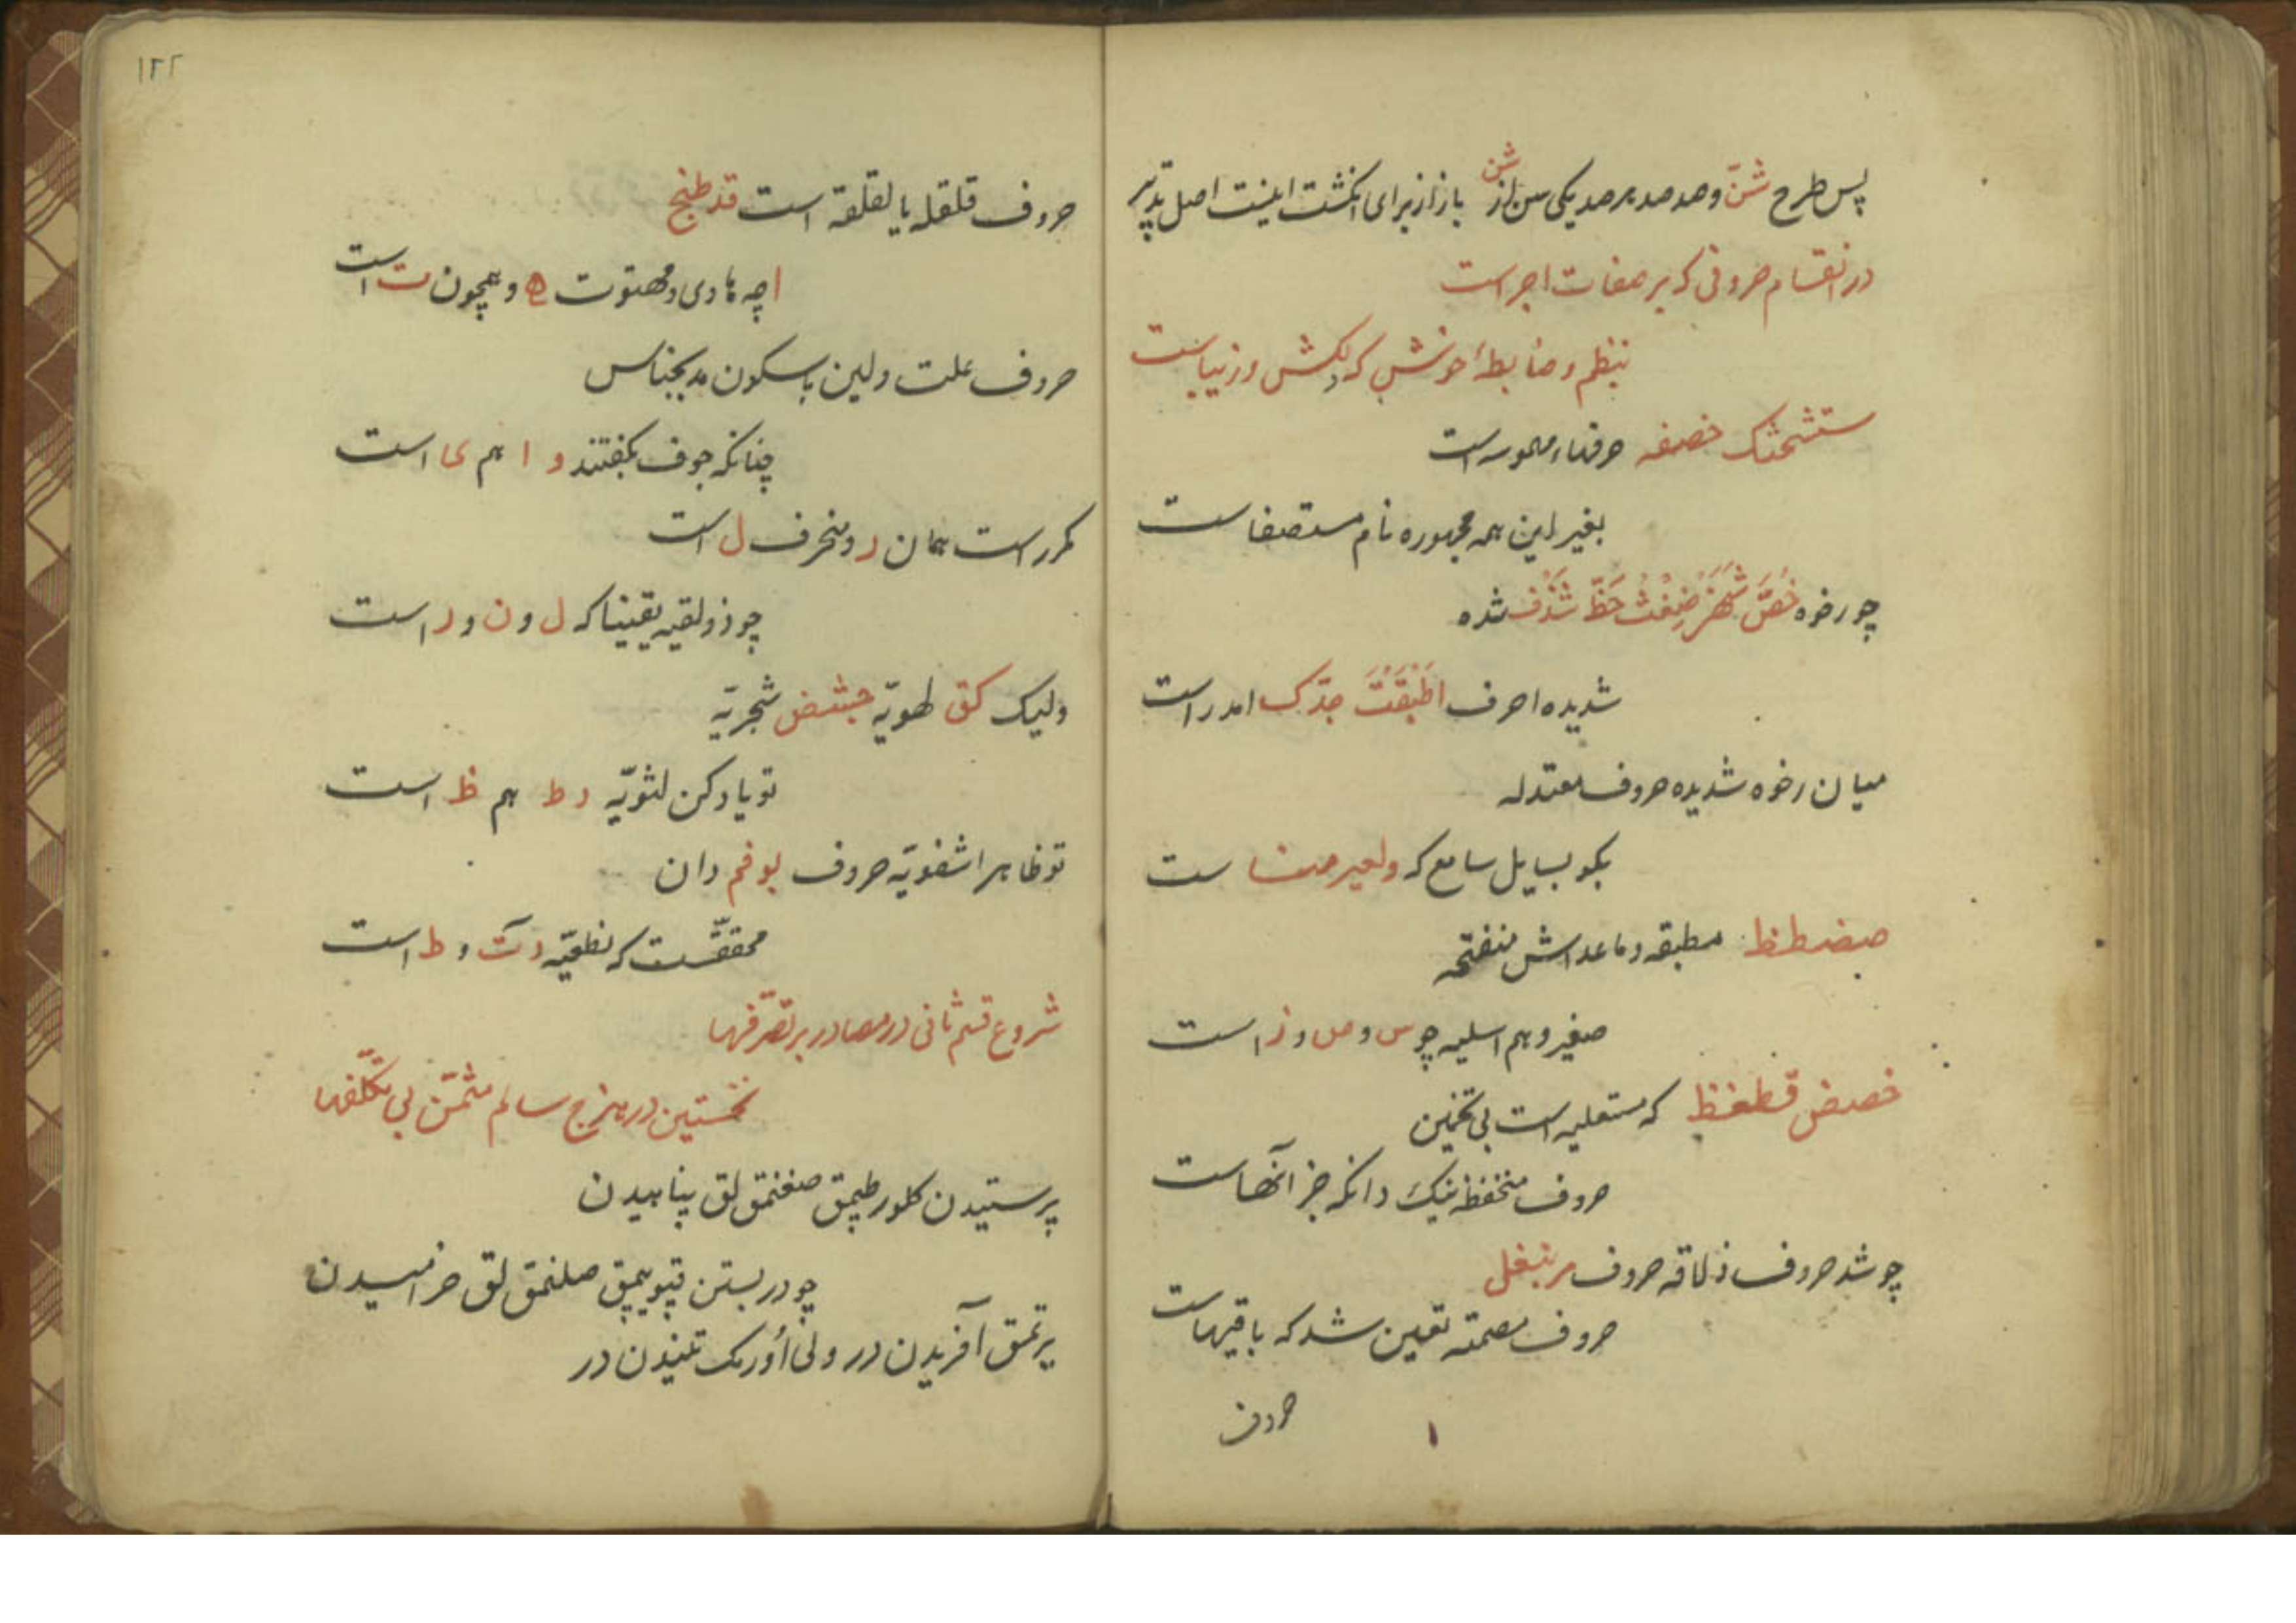 پس طرح شنّ و صد صد بر صد یکی سن از شن باز از برای انکشت اینست اصل تدبیر
در انقسام حروفی که بر صفات اجراست
بنظم و ضابطهٔ خوش که دلکش و زیباست
ستشحثک خصفه حرفهاء مهموسه است
بغیر این همه مجهوره نام مستصفاست
چو رخوه خُصَّ شَهَزٍ ضِغْثُ حَظّ شَذْف شده
شدیده احرف اَطْبَقَتْ جدّک امدراست
میان رخوه شدیده حروف معتدله
بکو بسایل سامع که ولعیرصنا ست
صضطظ مطبقه و ماعداش منفتحه
صفیر و هم اسلیه چو س و ص و ز است
خصض قطغظ که مستعلیه است بی تخمین
حروف منخفظه نیک دانکه جز آنهاست
چو شد حروف ذلاقه حروف مرنبغل
حروف مصمته تعیین شد که باقیهاست
حروف
۱۲۲
حروف قلقله یا لقلقه است قد طبج
ا چه هاوی و مهتوت ه و همچون ت است
حروف علت و لین با سکون مد بجناس
چنانکه جوف بکفتند و ا هم ی است
مکرر است همان ر و منحرف ل است
چو ذولقیه یقینا که ل و ن و ر است
ولیک کق لهویّه جشض شجریّه
تو یاد کن لثویّه ر ط هم ظ است
تو ظاهرا شفویّه حروف بوفم دان
محققّست که نطعیّه د ت و ط است
شروع قسم ثانی در مصادر بر تصرّفها
نخستین در هزج سالم مثمّن بی تکلّفها
پرستیدن کلور طپمق صغنمق لق پناهیدن
چو در بستن قپو یپمق صلنمق لق خرامیدن
یرتمق آفریدن در ولی اُورمک تنیدن در